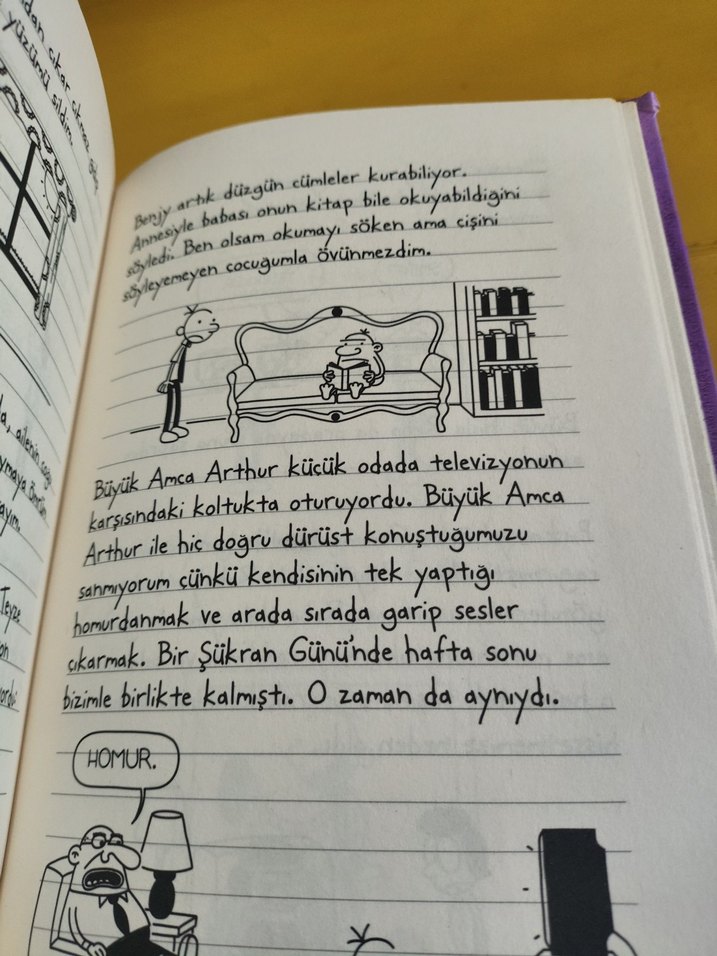 çıkar
yüzümü sildim.
ailenin
Teyze
Benjy artık düzgün cümleler kurabiliyor.
Annesiyle babası onun kitap bile okuyabildiğini
söyledi. Ben olsam okumayı söken ama çişini
söyleyemeyen çocuğumla övünmezdim.
Büyük Amca Arthur küçük odada televizyonun
karşısındaki koltukta oturuyordu. Büyük Amca
Arthur ile hiç doğru dürüst konuştuğumuzu
sanmıyorum çünkü kendisinin tek yaptığı
homurdanmak ve arada sırada garip sesler
çıkarmak. Bir Şükran Günü'nde hafta sonu
bizimle birlikte kalmıştı. O zaman da aynıydı.
HOMUR.